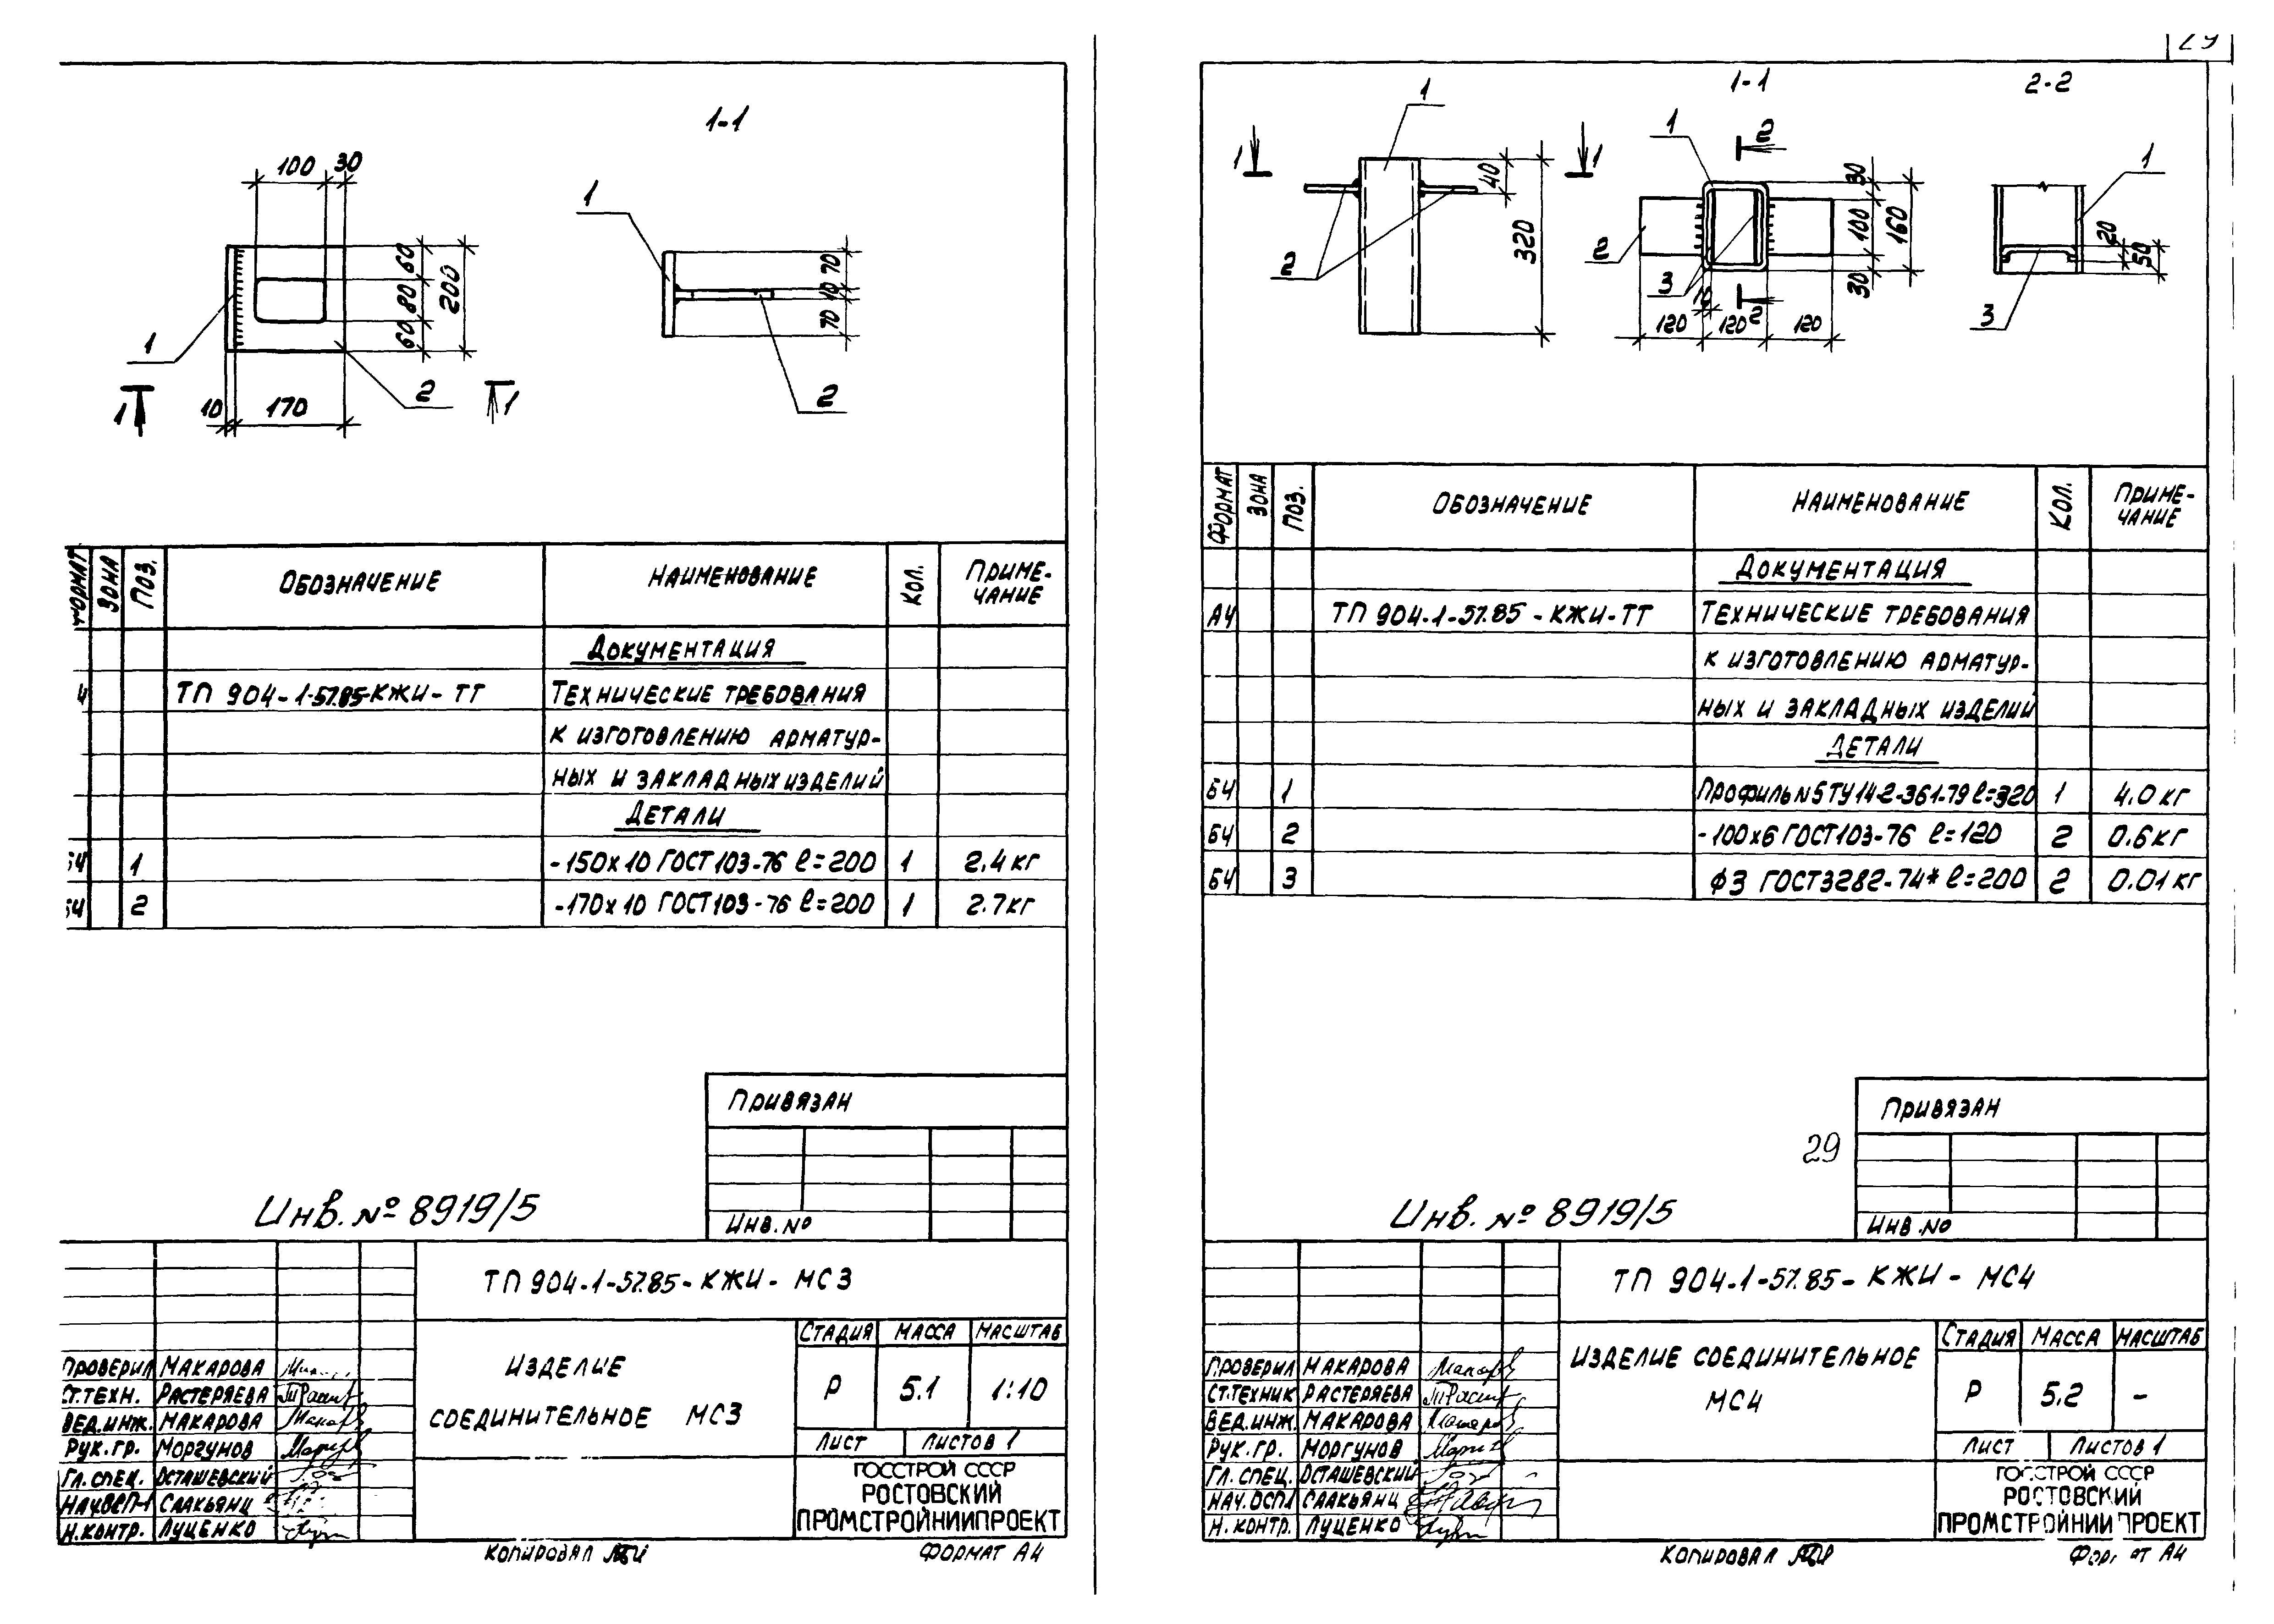 1-1
100 30
60
80
60
200
1
2
10 170
1 1
1
2
70
10
70
ФОРМАТ ЗОНА ПОЗ. ОБОЗНАЧЕНИЕ НАИМЕНОВАНИЕ КОЛ. ПРИМЕ-
ЧАНИЕ
ДОКУМЕНТАЦИЯ
4 ТП 904-1-57.85-КЖИ-ТТ ТЕХНИЧЕСКИЕ ТРЕБОВАНИЯ
К ИЗГОТОВЛЕНИЮ АРМАТУР-
НЫХ И ЗАКЛАДНЫХ ИЗДЕЛИЙ
ДЕТАЛИ
БЧ 1 -150х10 ГОСТ 103-76 ℓ=200 1 2.4 кг
БЧ 2 -170х10 ГОСТ 103-76 ℓ=200 1 2.7 кг
ПРИВЯЗАН
ИНВ.NO
Инв. № 8919/5
ТП 904-1-57.85-КЖИ-МС3
ИЗДЕЛИЕ
СОЕДИНИТЕЛЬНОЕ МС3
СТАДИЯ МАССА МАСШТАБ
Р 5.1 1:10
ЛИСТ ЛИСТОВ 1
ГОССТРОЙ СССР
РОСТОВСКИЙ
ПРОМСТРОЙНИИПРОЕКТ
ПРОВЕРИЛ МАКАРОВА
СТ.ТЕХН. РАСТЕРЯЕВА
ВЕД.ИНЖ. МАКАРОВА
РУК.ГР. МОРГУНОВ
ГЛ.СПЕЦ. ОСТАШЕВСКИЙ
НАЧ.ОСП-1 СААКЬЯНЦ
Н.КОНТР. ЛУЦЕНКО
КОПИРОВАЛ ФОРМАТ А4
29
1-1 2-2
1
1 1
2
40
320
1
2
2
3
2
30
100
30
160
10
120 120 120
1
20
50
3
ФОРМАТ ЗОНА ПОЗ. ОБОЗНАЧЕНИЕ НАИМЕНОВАНИЕ КОЛ. ПРИМЕ-
ЧАНИЕ
ДОКУМЕНТАЦИЯ
А4 ТП 904-1-57.85-КЖИ-ТТ ТЕХНИЧЕСКИЕ ТРЕБОВАНИЯ
К ИЗГОТОВЛЕНИЮ АРМАТУР-
НЫХ И ЗАКЛАДНЫХ ИЗДЕЛИЙ
ДЕТАЛИ
БЧ 1 ПРОФИЛЬ N5 ТУ14-2-361-79 ℓ=320 1 4.0 кг
БЧ 2 -100х6 ГОСТ103-76 ℓ=120 2 0.6 кг
БЧ 3 ф3 ГОСТ3282-74* ℓ=200 2 0.01 кг
ПРИВЯЗАН
29
ИНВ.NO
Инв. № 8919/5
ТП 904-1-57.85-КЖИ-МС4
ИЗДЕЛИЕ СОЕДИНИТЕЛЬНОЕ
МС4
СТАДИЯ МАССА МАСШТАБ
Р 5.2 -
ЛИСТ ЛИСТОВ 1
ГОССТРОЙ СССР
РОСТОВСКИЙ
ПРОМСТРОЙНИИПРОЕКТ
ПРОВЕРИЛ МАКАРОВА
СТ.ТЕХНИК РАСТЕРЯЕВА
ВЕД.ИНЖ. МАКАРОВА
РУК.ГР. МОРГУНОВ
ГЛ.СПЕЦ. ОСТАШЕВСКИЙ
НАЧ.ОСП1 СААКЬЯНЦ
Н.КОНТР. ЛУЦЕНКО
КОПИРОВАЛ ФОРМАТ А4